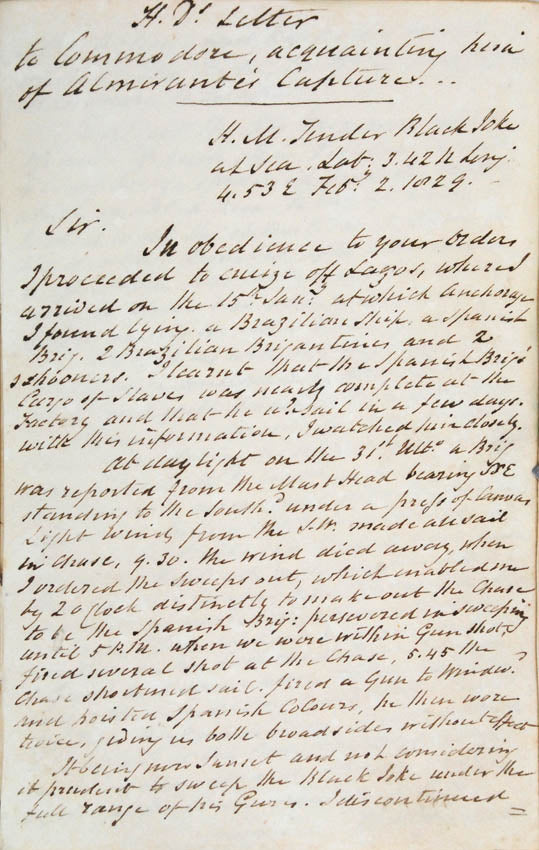 H. Ds. Letter
to Commodore, acquainting him
of Almirante's Capture...
H. M. Tender Black Joke
at Sea. Lat: 3.42 N Long:
4.53 E Feby. 2. 1829.
Sir.
In obedience to your Orders
I proceeded to cruize off Lagos, where I
arrived on the 15th Jany. at which Anchorage
I found lying. a Brazilian Ship. a Spanish
Brig. 2 Brazilian Brigantines and 2
schooners. I learnt that the Spanish Brig's
Cargo of Slaves was nearly complete at the
Factory and that he wd. sail in a few days.
with this information, I watched him closely.
At daylight on the 31st Ulto. a Brig
was reported from the Mast Head bearing
standing to the Southd. under a press of Canvas
Light Winds from the S.W. made all sail
in Chase, 9.30. the wind died away, when
I ordered the Sweeps out, which enabled me
by 2 oglock distinctly to make out the Chase
to be the Spanish Brig: persevered in sweeping
until 5 P.M. when we were within Gun shot,
fired several shot at the Chase, 5.45 the
Chase shortened sail. fired a Gun to Windwd.
and hoisted Spanish Colours, he then wore
twice, giving us both broadsides without effect
It being now Sunset and not considering
it prudent to sweep the Black Joke under the
full range of his Guns. I discontinued =